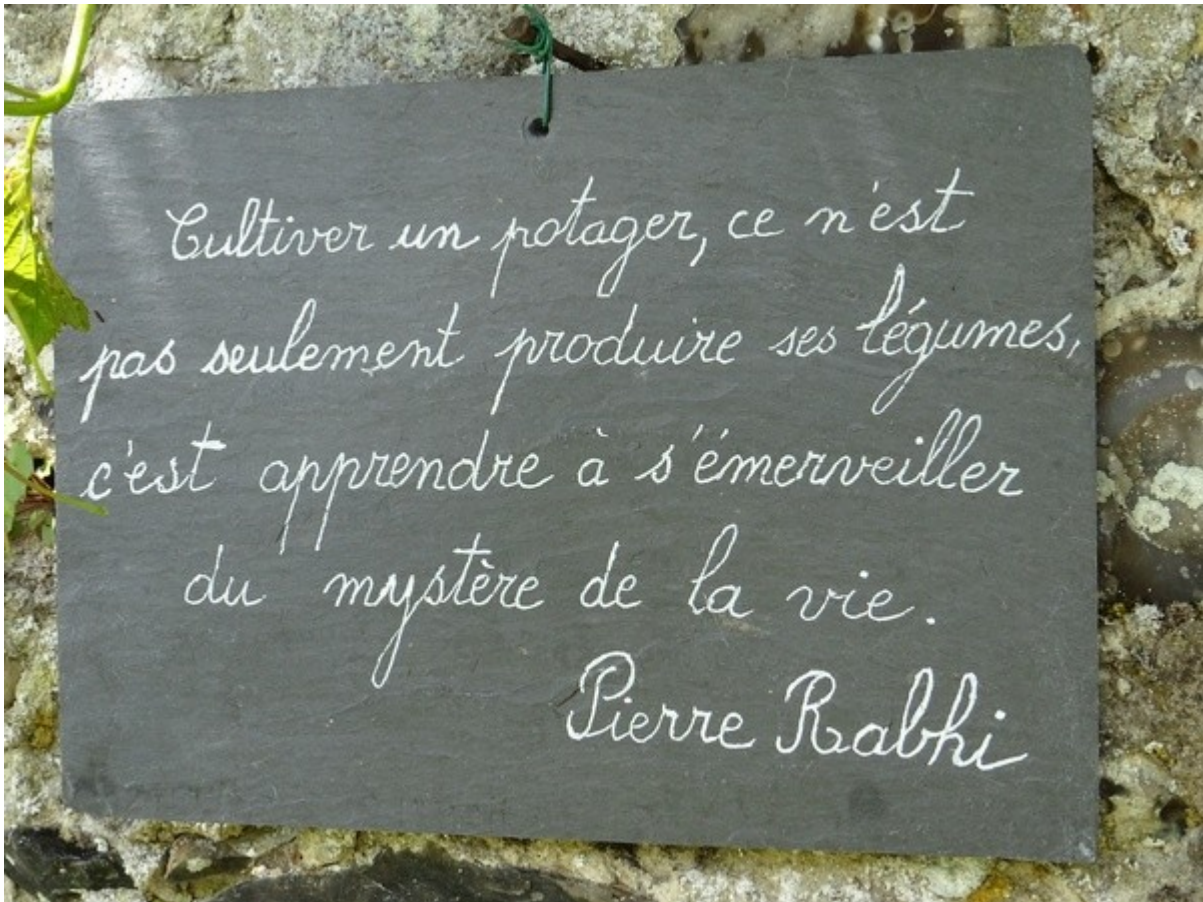 Cultiver un potager, ce n'est
pas seulement produire ses légumes,
c'est apprendre à s'émerveiller
du mystère de la vie.
Pierre Rabhi